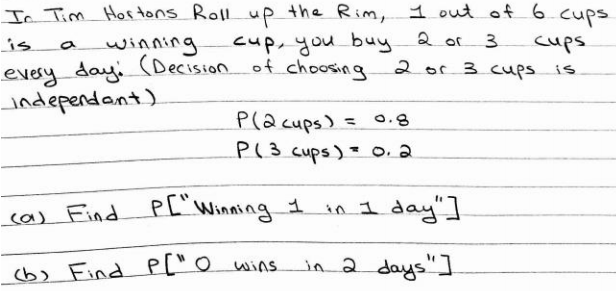 In Tim Hortons Roll up the Rim, 1 out of 6 cups
is a winning cup, you buy 2 or 3 cups
every day. (Decision of choosing 2 or 3 cups is
independant)
P(2 cups) = 0.8
P(3 cups) = 0.2
(a) Find P["Winning 1 in 1 day"]
(b) Find P["0 wins in 2 days"]